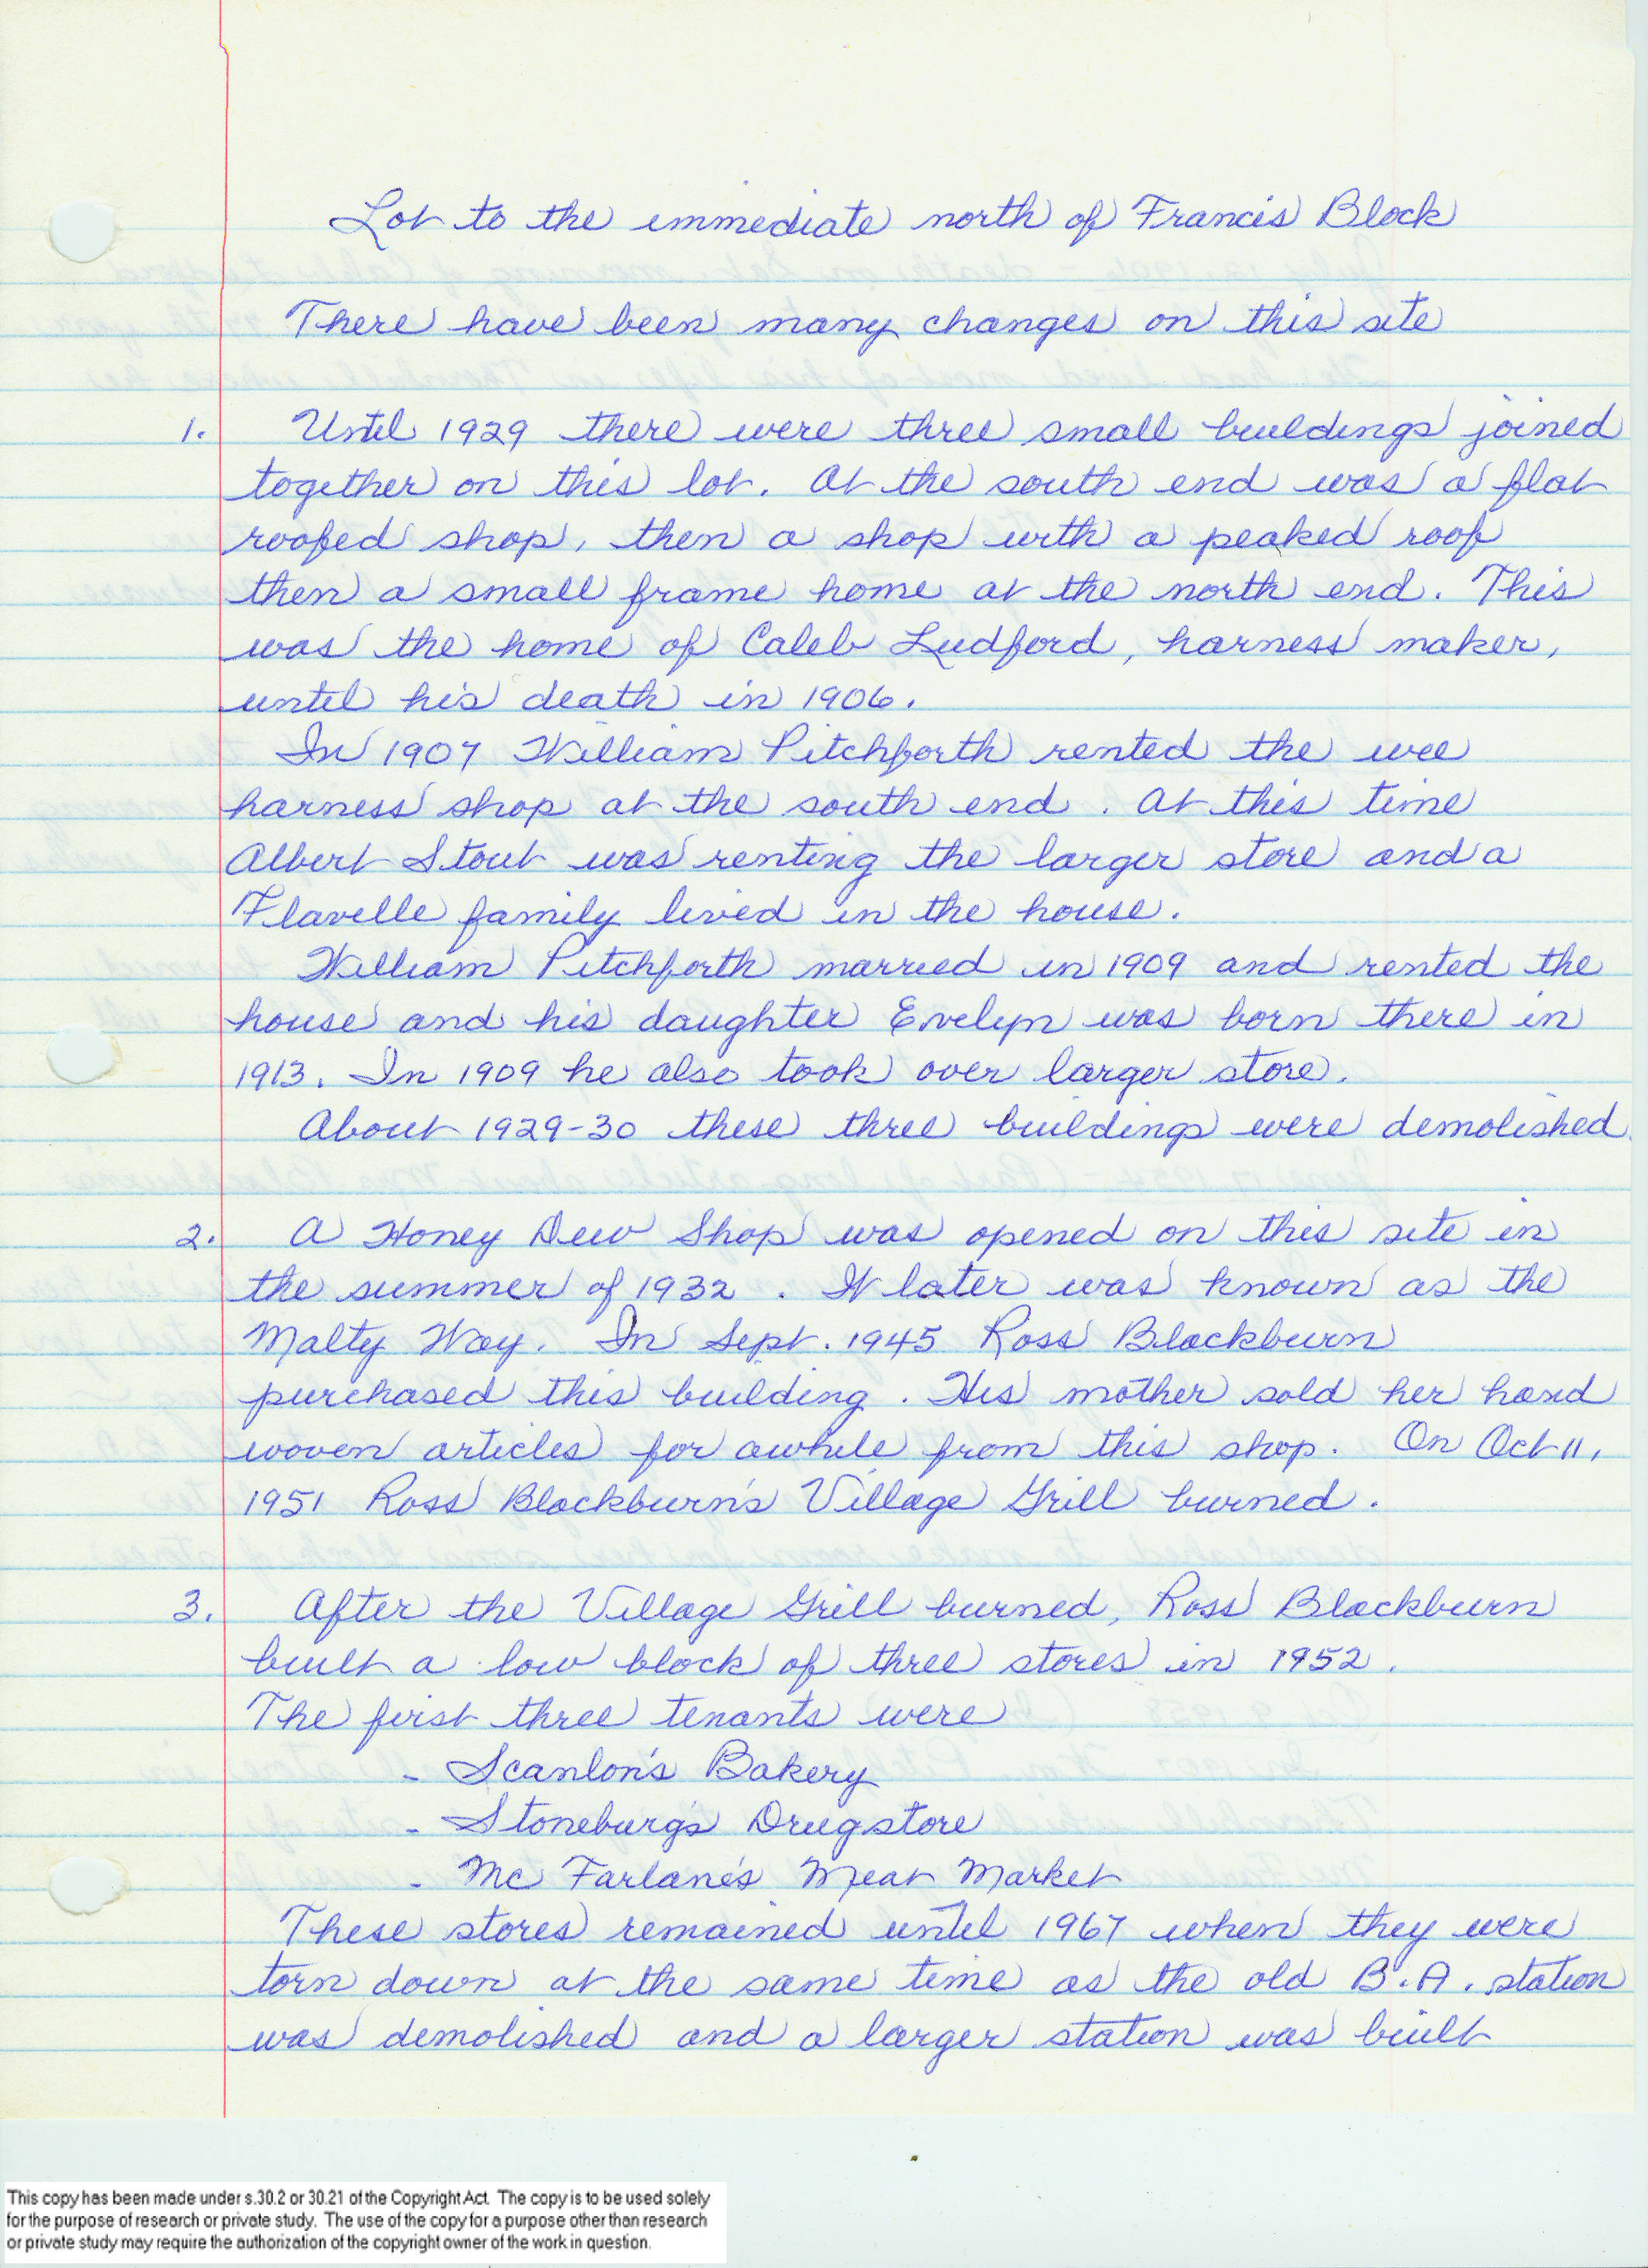 Lot to the immediate north of Francis Block
There have been many changes on this site
1. Until 1929 there were three small buildings joined
together on this lot. At the south end was a flat
roofed shop, then a shop with a peaked roof
then a small frame home at the north end. This
was the home of Caleb Ludford, harness maker,
until his death in 1906.
In 1907 William Pitchforth rented the wee
harness shop at the south end. At this time
Albert Stout was renting the larger store and a
Flavelle family lived in the house.
William Pitchforth married in 1909 and rented the
house and his daughter Evelyn was born there in
1913. In 1909 he also took over larger store.
About 1929-30 these three buildings were demolished.
2. A Honey Dew Shop was opened on this site in
the summer of 1932. It later was known as the
Malty Way. In Sept. 1945 Ross Blackburn
purchased this building. His mother sold her hand
woven articles for awhile from this shop. On Oct 11,
1951 Ross Blackburn's Village Grill burned.
3. After the Village Grill burned, Ross Blackburn
built a low block of three stores in 1952.
The first three tenants were
- Scanlon's Bakery
- Stoneburg's Drugstore
- Mc Farlane's Meat Market
These stores remained until 1967 when they were
torn down at the same time as the old B.A. station
was demolished and a larger station was built
This copy has been made under s.30.2 or 30.21 of the Copyright Act. The copy is to be used solely
for the purpose of research or private study. The use of the copy for a purpose other than research
or private study may require the authorization of the copyright owner of the work in question.